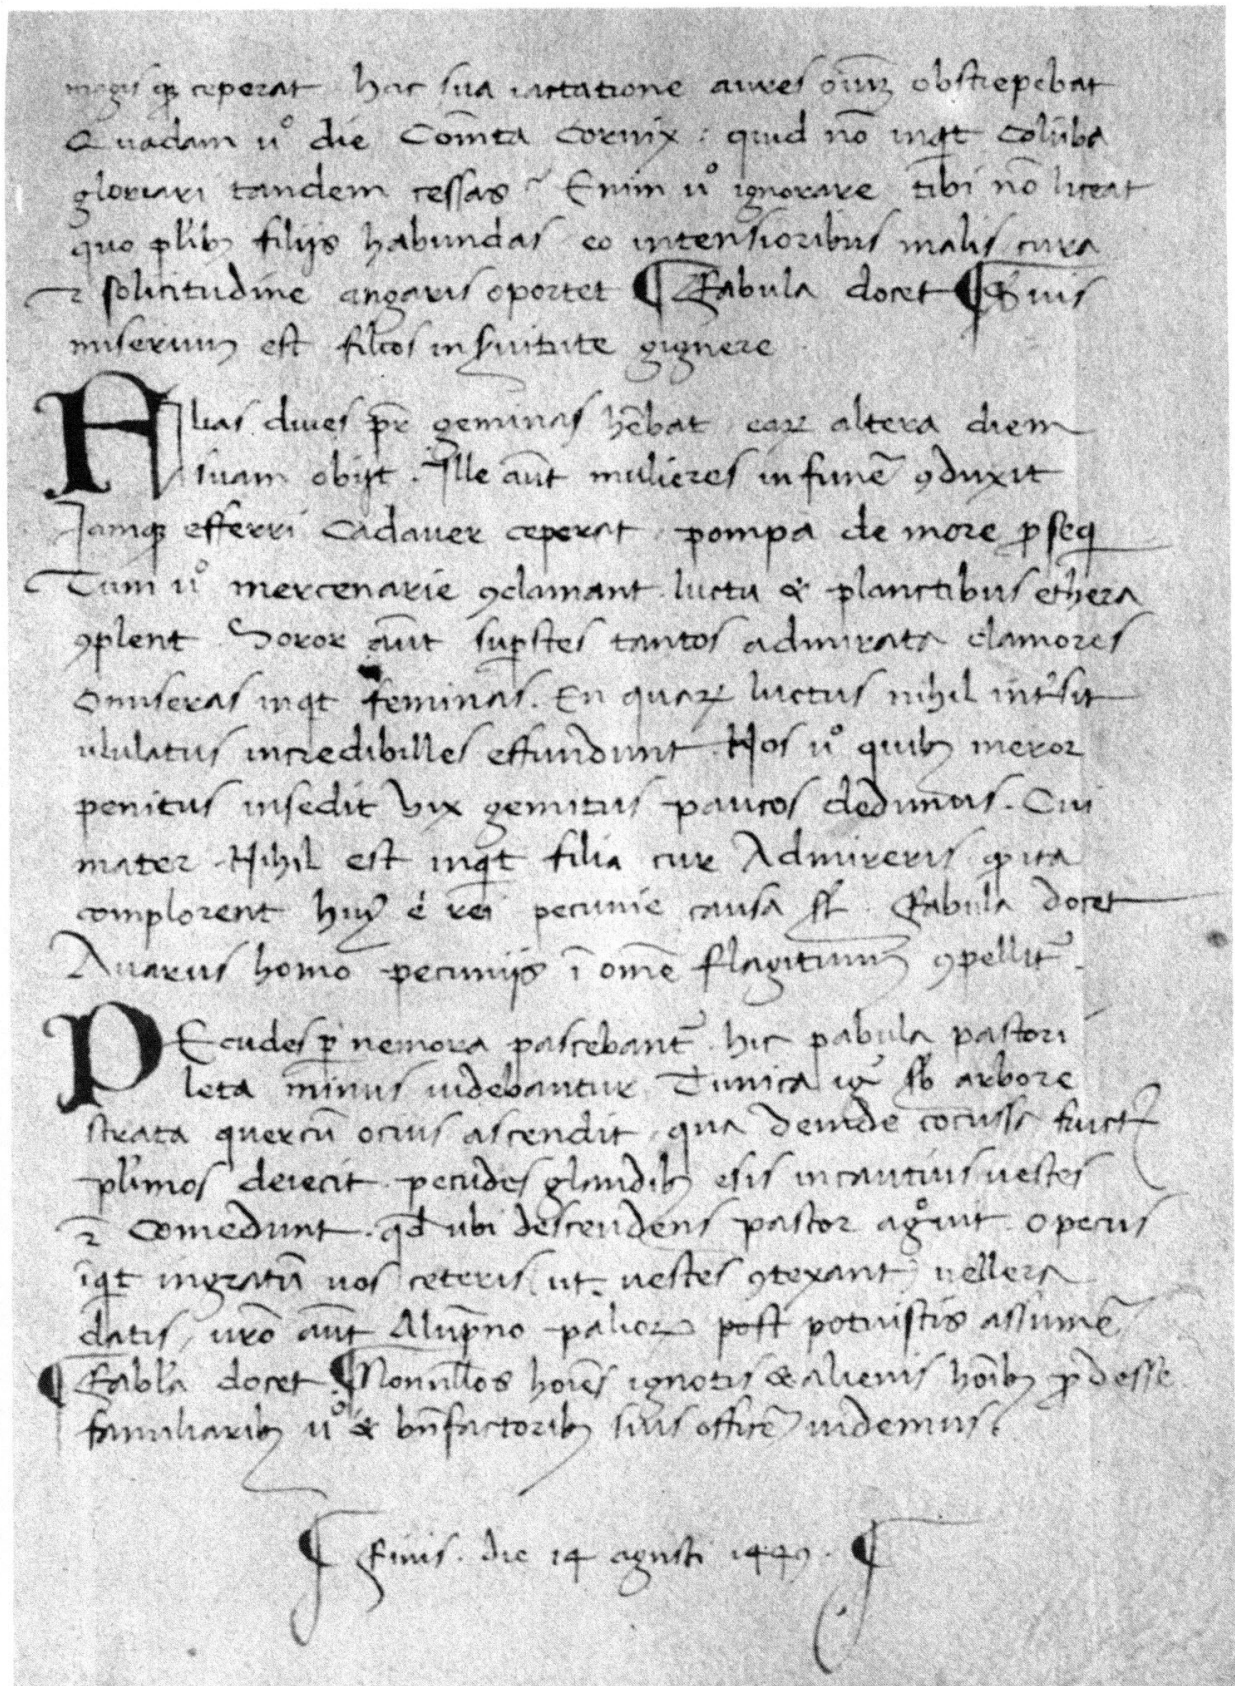 magis qꝫ ceperat hac sua iactatione aures oiūꝫ obstrepebat
Quadam uº die Com̄ta Cornix : quid nō inqt Colūba
gloriari tandem cessas ~ Enim uº ignorare tibi nō liceat
quo plibꝫ filijs habundas eo intensioribus malis cura
⁊ solicitudine angaris oportet ¶ Fabula docet ¶
miserum est filios in suitute gignere
Alias diues pr̄ geminas hēbat eaꝝ altera diem
suam obijt . Ille aūt mulieres in funē ꝯduxit
Jamqꝫ efferri Cadauer ceperat pompa de more ꝓseq
Tum uº mercenarie ꝯclamant luctu & planctibus ethera
ꝯplent Soror aūt suꝑstes tantos admirata clamores
O miseras inqt feminas . En quaꝝ luctus nihil int̄sit
ululatus incredibilles effundunt . Nos uº quibꝫ meror
penitus insedit vix gemitus paucos dedimus . Cui
mater Nihil est inqt filia cur Admireris ita
complorent huiꝰ ē rei pecunie causa st . Fabula docet
Auarus homo pecunijs ī omē flagitium ꝯpellit~ .
PEcudes ꝑ nemora pascebant~ . hic pabula pastori
leta minus uidebantur Tunica ig~ sb arbore
strata quercū ocius ascendit qua deinde cōcussa fruct
pl̄imos deiecit pecudes glandibꝫ esis incautius uestes
⁊ Comedunt . qd̄ ubi descendens pastor agºuit O pecus
īqt ingratū uos ceteris ut uestes ꝯtexant uellera
datis , uro aūt post potuistis assumē
¶ Fabl̄a docet ¶ Nonull̄os hoīes ignotis & alienis hoībꝫ ꝓdesse
familiaribꝫ uº & bn̄factoribꝫ suis officē uidemus .
¶ Finis . die 14 agusti 1449 . ¶